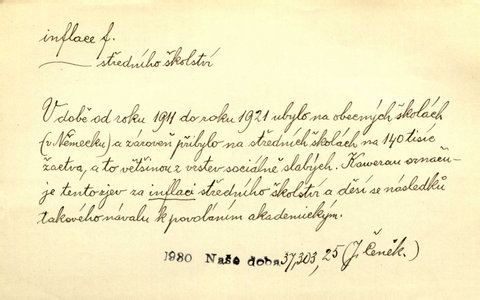 inflace f.
—— středního školství
V době od roku 1911 do roku 1921 ubylo na obecných školách
(v Německu) a zároveň přibylo na středních školách na 140 tisíc
žactva, a to většinou z vrstev sociálně slabých. Kawerau označu-
je tento zjev za inflaci středního školství a děsí se následků
takového návalu k povoláním akademickým.
1930 Naše doba 37,303,25 (J. Čeněk.)